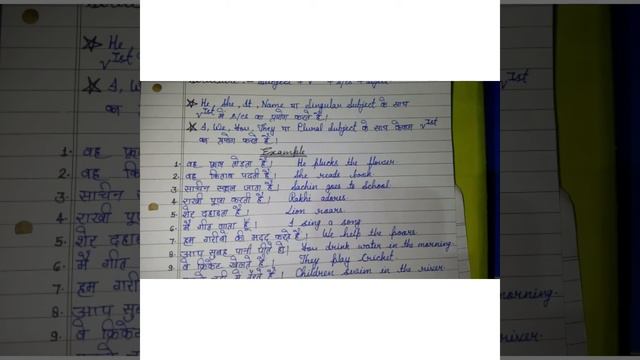 * He, She, It, Name या Singular Subject के साथ
V Ist में s/es का प्रयोग करते हैं।
* I, We, You, They या Plural Subject के साथ केवल V Ist
का प्रयोग करते हैं।
Example
1. वह फूल तोड़ता है। He plucks the flower
2. वह किताब पढ़ती है। She reads book
3. सचिन स्कूल जाता है। Sachin goes to school
4. राखी पूजा करती है। Rakhi adores
5. शेर दहाड़ता है। Lion roars.
6. मैं गीत गाता हूँ। I sing a song
7. हम गरीबों की मदद करते हैं। We help the poors
8. आप सुबह पानी पीते हो। You drink water in the morning.
9. वे क्रिकेट खेलते हैं। They play Cricket
Children swim in the river